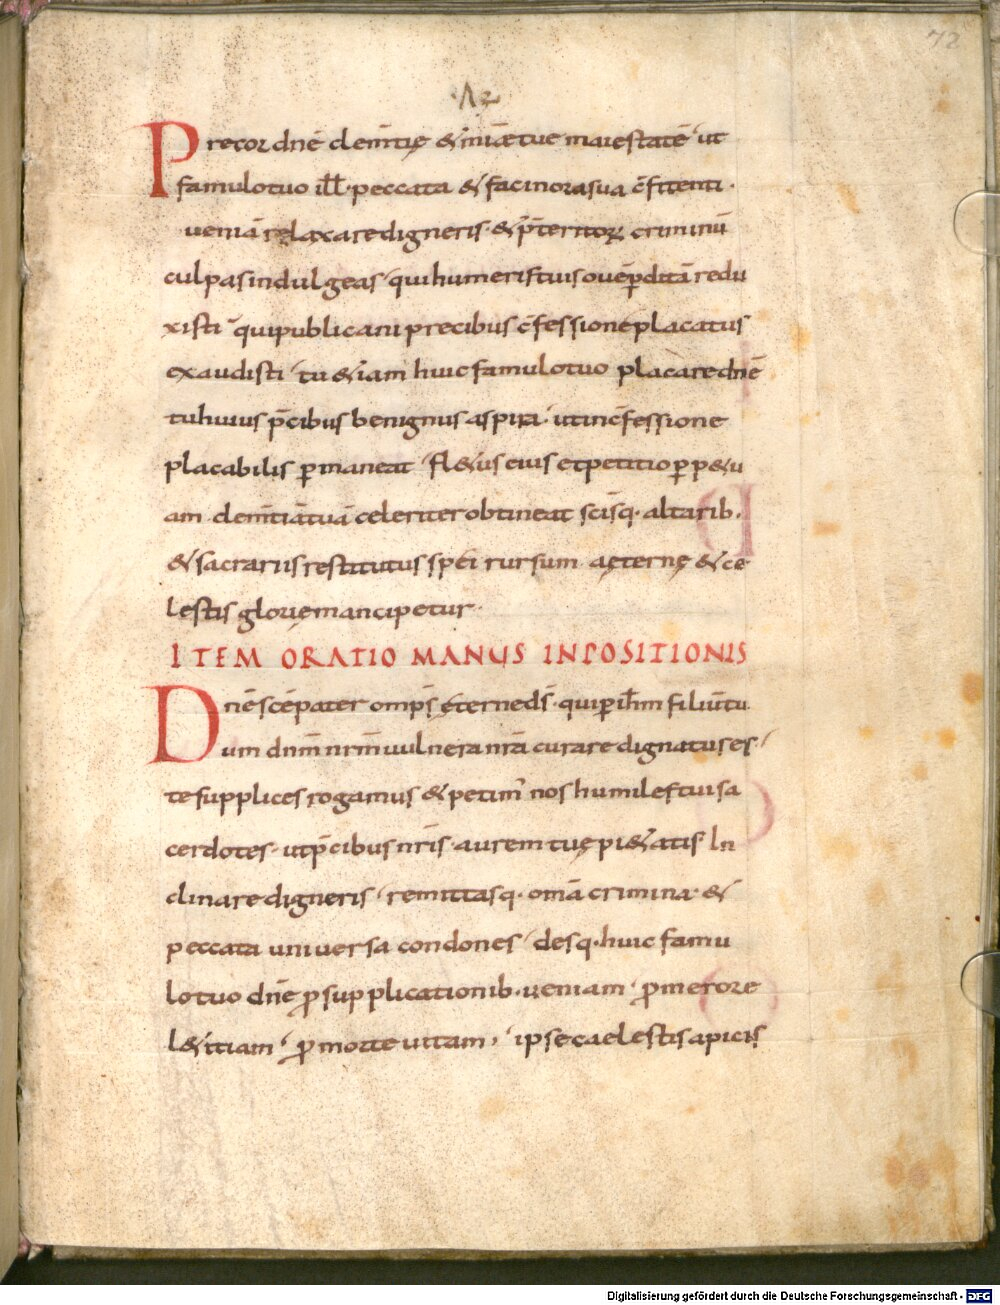 72
·Λ2
Precor dnē clem̄tię & miæ tuę maiestatē ut
famulo tuo ill̄· peccata & facinora sua c̄fitenti·
ueniā relaxare digneris· & p̄teritoꝝ criminū
culpas indulgeas qui humeris tuis ouē ꝑditā redu
xisti qui publicani precibus c̄fessione placatus
exaudisti tu & iam huic famulo tuo placare dnē
tu huius p̄cibus benignus aspira· ut in c̄fessione
placabilis ꝑmaneat fl&us eius et petitio ꝑp&u
am clem̄tiā tuā celeriter obtineat sc̄isq· altarib·
& sacrariis restitutus spei rursum aęternę & ce
lestis glorię mancipetur·
ITEM ORATIO MANUS INPOSITIONIS
Dnē sc̄e pater omp̄s ęterne ds̄· qui ꝑ ih̄m filiū tu
um dnm̄ nrm̄ uulnera nrā curare dignatus es
te supplices rogamus & petim' nos humiles tui sa
cerdotes· ut p̄cibus nr̄is aurem tuę pi&atis In
clinare digneris remittasq· om̄a crimina· &
peccata uniuersa condones desq· huic famu
lo tuo dnē ꝓ supplicationib· ueniam ꝓ merore
l&itiam ꝓ morte uitam, ipse caelestis apicis
Digitalisierung gefördert durch die Deutsche Forschungsgemeinschaft - DFG